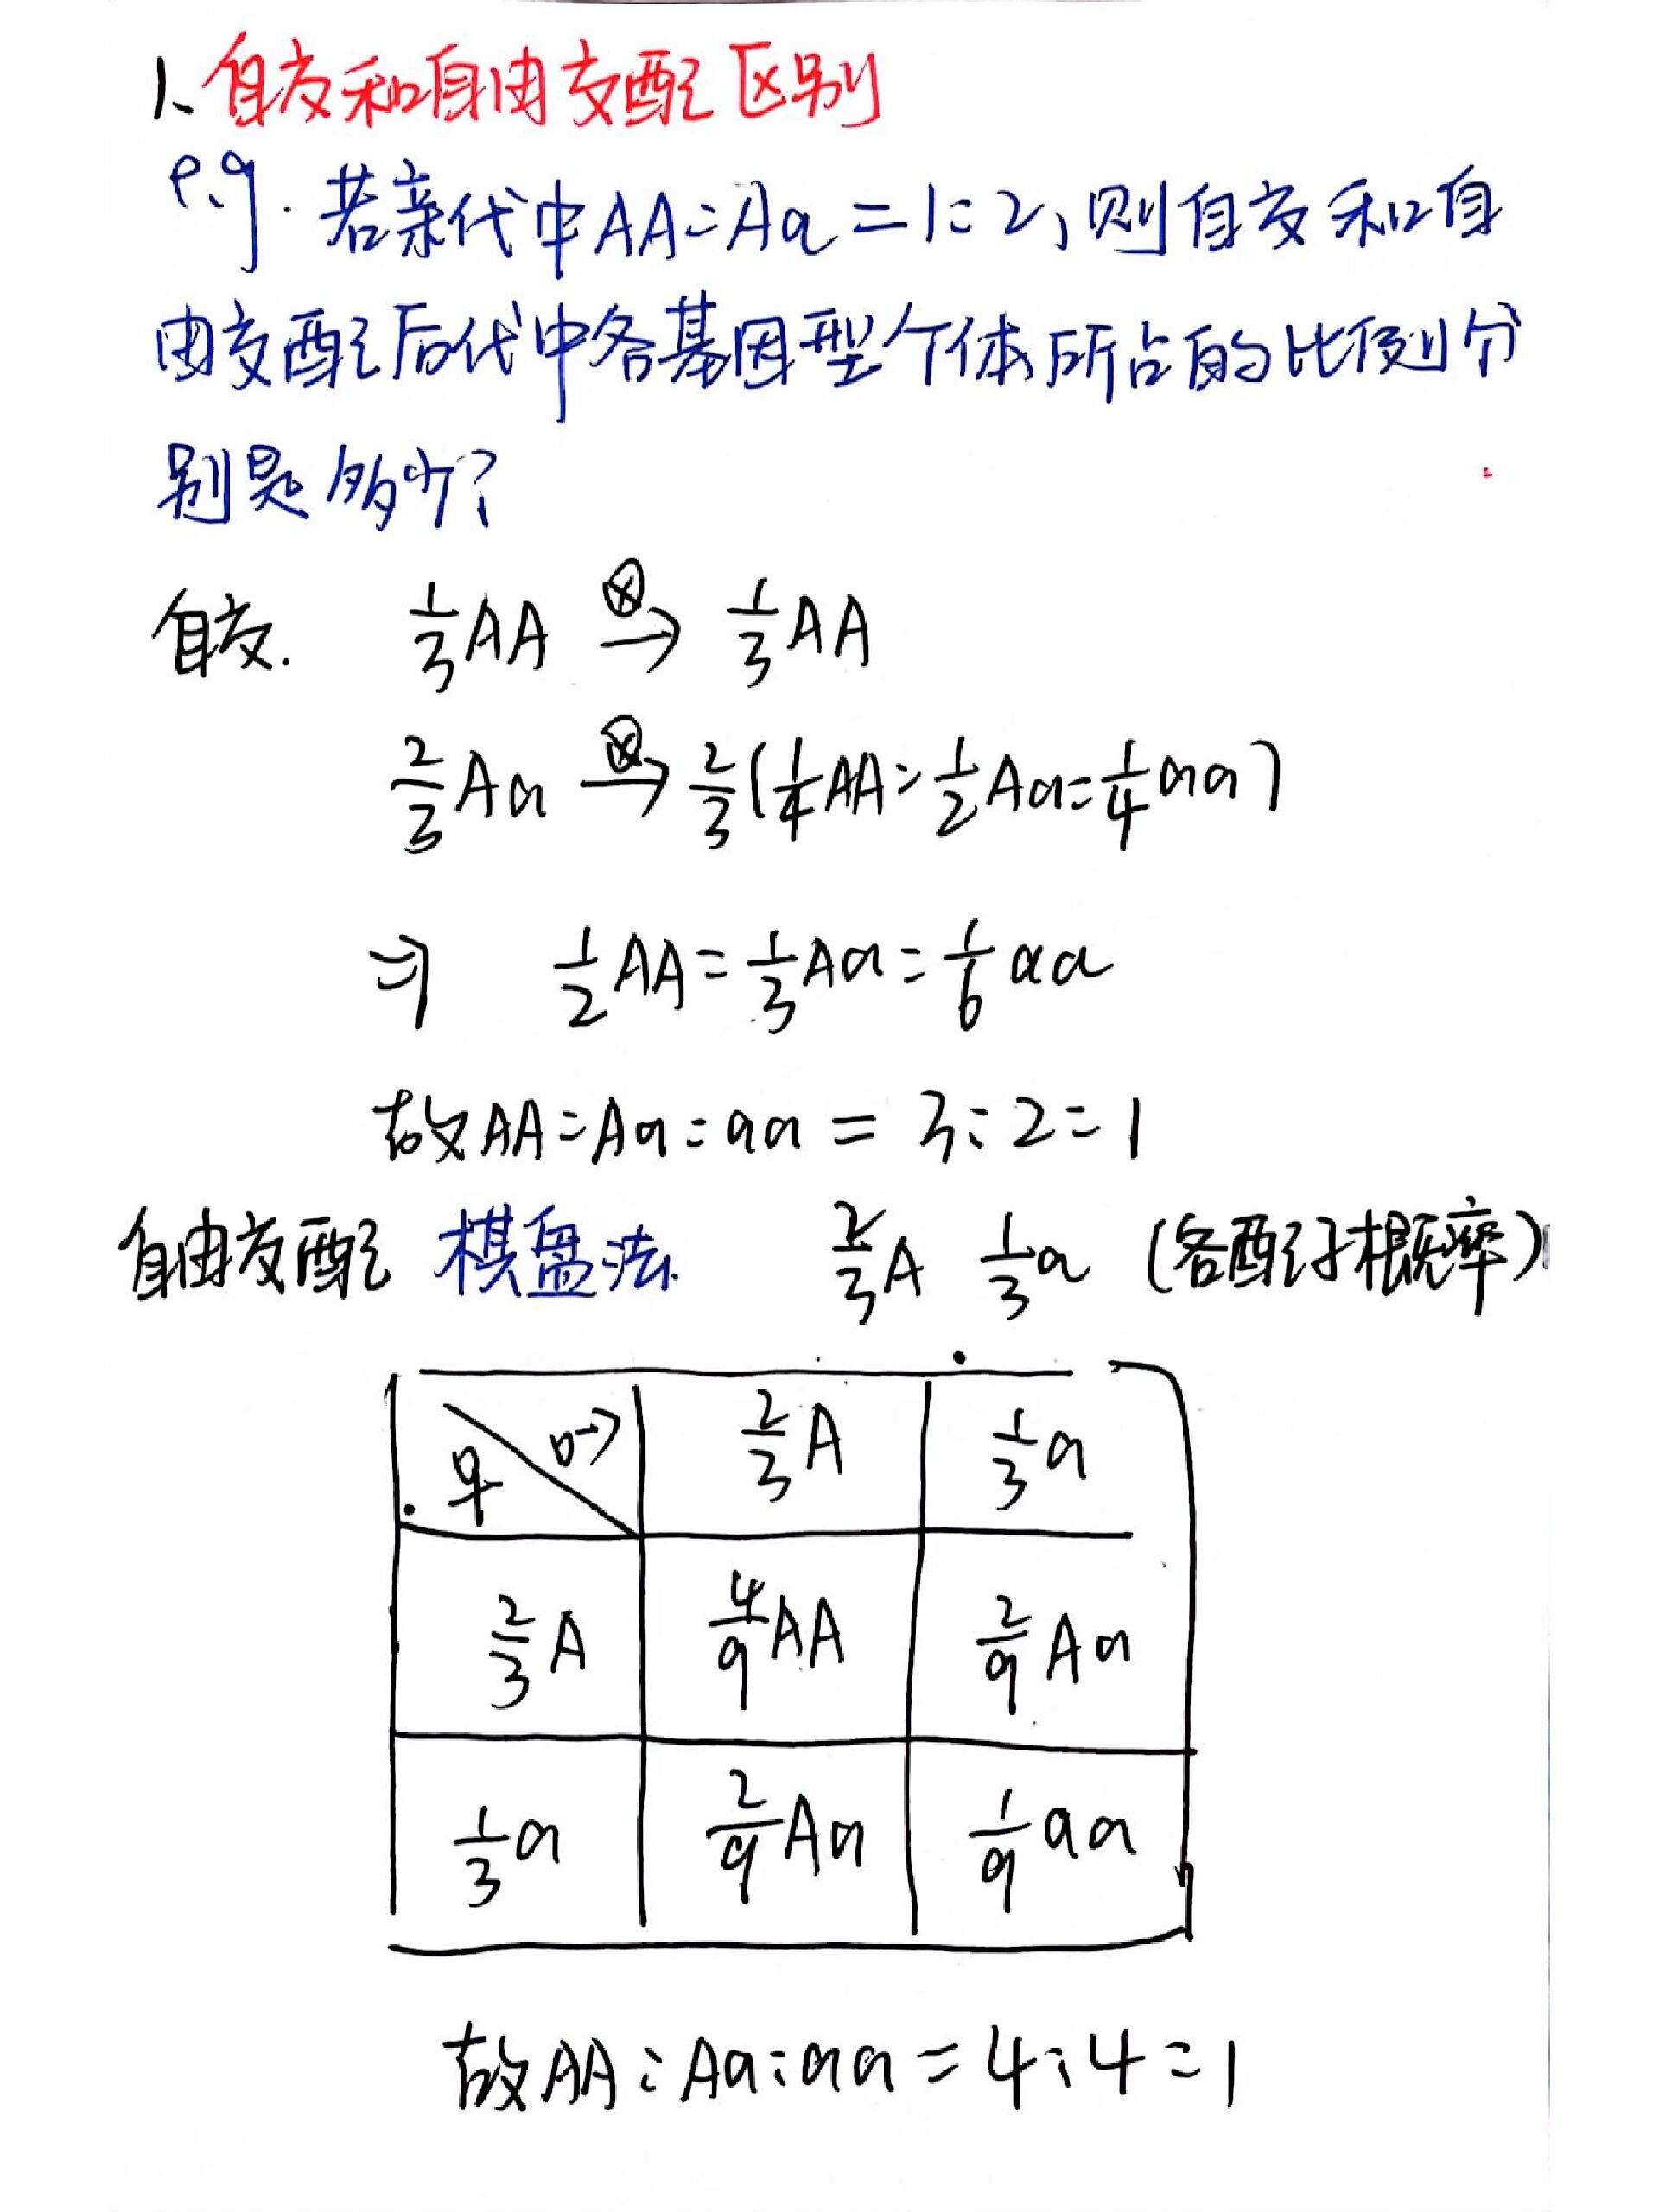 1、自交和自由交配区别
e.g. 若亲代中AA:Aa=1:2,则自交和自
由交配后代中各基因型个体所占的比例分
别是多少?
自交. 1/3AA ⊗→ 1/3AA
2/3Aa ⊗→ 2/3(1/4AA:1/2Aa:1/4aa)
⇒ 1/2AA:1/3Aa:1/6aa
故AA:Aa:aa = 3:2:1
自由交配 棋盘法. 2/3A 1/3a (各配子概率)
♀ ♂ 2/3A 1/3a
2/3A 4/9AA 2/9Aa
1/3a 2/9Aa 1/9aa
故AA:Aa:aa=4:4:1